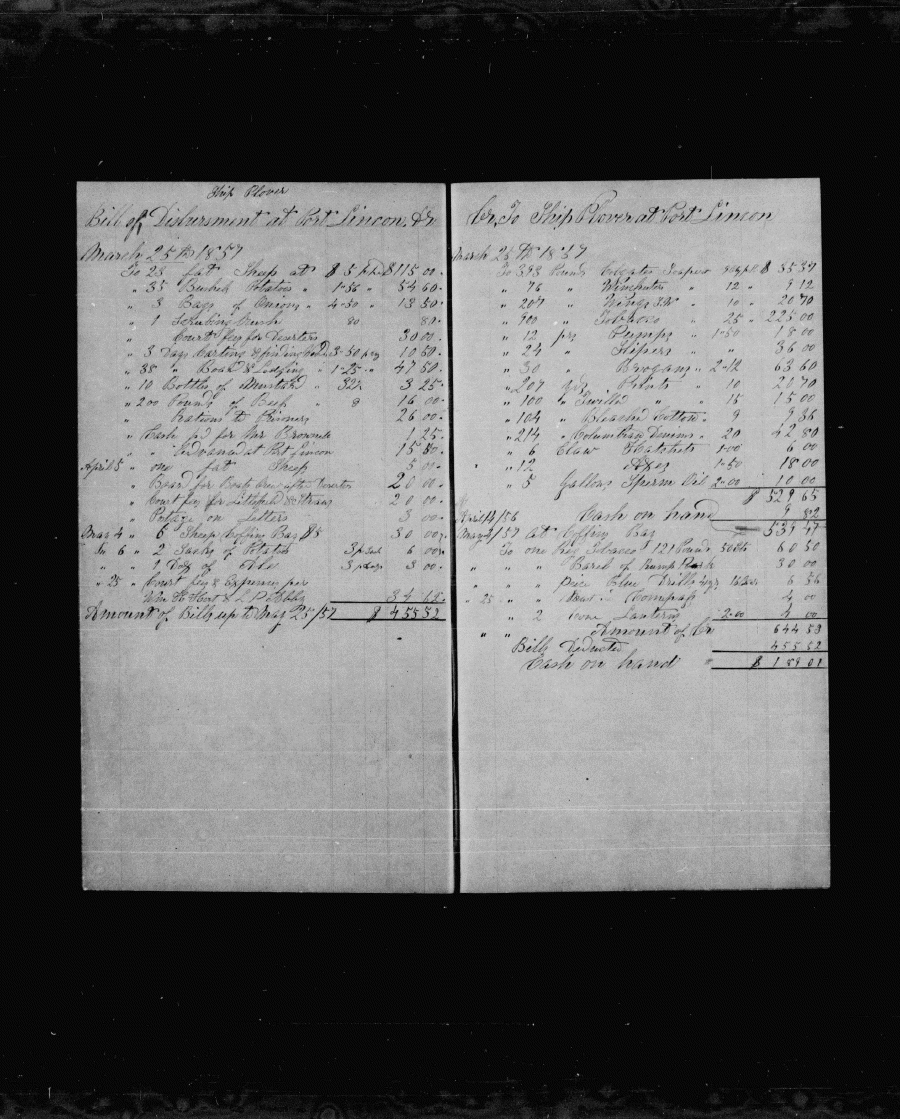 Ship Plover
Bill of Disbursment at Port Lincon &c
March 25th 1857
To 23 fat Sheep at $5 pr hd $115 00
" 35 Bushels Potatoes " 1-56 " 54 60
" 3 Bags of Onions " 4-50 " 13 50
" 1 Scrubing Brush 80 80
" Court fees for Deserters 30 00
" 3 Days 3-50 10 50
" 38 " Board & Lodging " 1-25 " 47 50
" 10 Bottles of Mustard " 32½ 3 25
" 200 Pounds of Beef " 8 16 00
" Rations to Prisoners 26 00
" Cash pd for Mr Brownell 1 25
" " Advanced at Port Lincon 15 50
April 5 " one fat Sheep 5 00
" Board for Boats Crew after Deserters 20 00
" Court fees for Littlefield & 20 00
" Postage on Letters 3 00
May 4 " 6 Sheep Coffins Bay $5 30 00
" 6 " 2 Sacks of Potatos 3 pr Sack 6 00
" " 1 Doz of 3 00
" 25 " Court fees & Expenses per
Wm H Hart & 34 62
Amount of Bills up to May 25/57 $ 455 52
Cr To Ship Plover at Port Lincon
March 25th 1857
To 393 Pounds Colgates Soap $ 35 37
" 76 " " 12 " 9 12
" 207 " " 10 " 20 70
" 900 " Tobbacco " 25 " 225 00
" 12 prs Pumps " 1-50 18 00
" 24 " Slipers " " 36 00
" 30 " Brogans " 2-12 63 60
" 207 yds Prints " 10 20 70
" 100 " Twilled " " 15 15 00
" 104 " Bleached Cotton " 9 9 36
" 214 " Columbian Denims " 20 42 80
" 6 Claw Hatchets 1-00 6 00
" " 12 Axes 1-50 18 00
" 5 Gallons Sperm Oil 2-00 10 00
$ 529 65
Cash on hand 9 82
539 47
May 4/57 at Coffins Bay
To one Keg Tobacco 121 Pounds 50cts 60 50
" " " Barel of 30 00
" " " Piece Blue Drills 6 56
" 25 " " Compass 4 00
" " 2 Lanterns 2-00 4 00
" " Amount of Cr 644 53
Bills Deducted 455 52
Cash on hand " $ 189 01